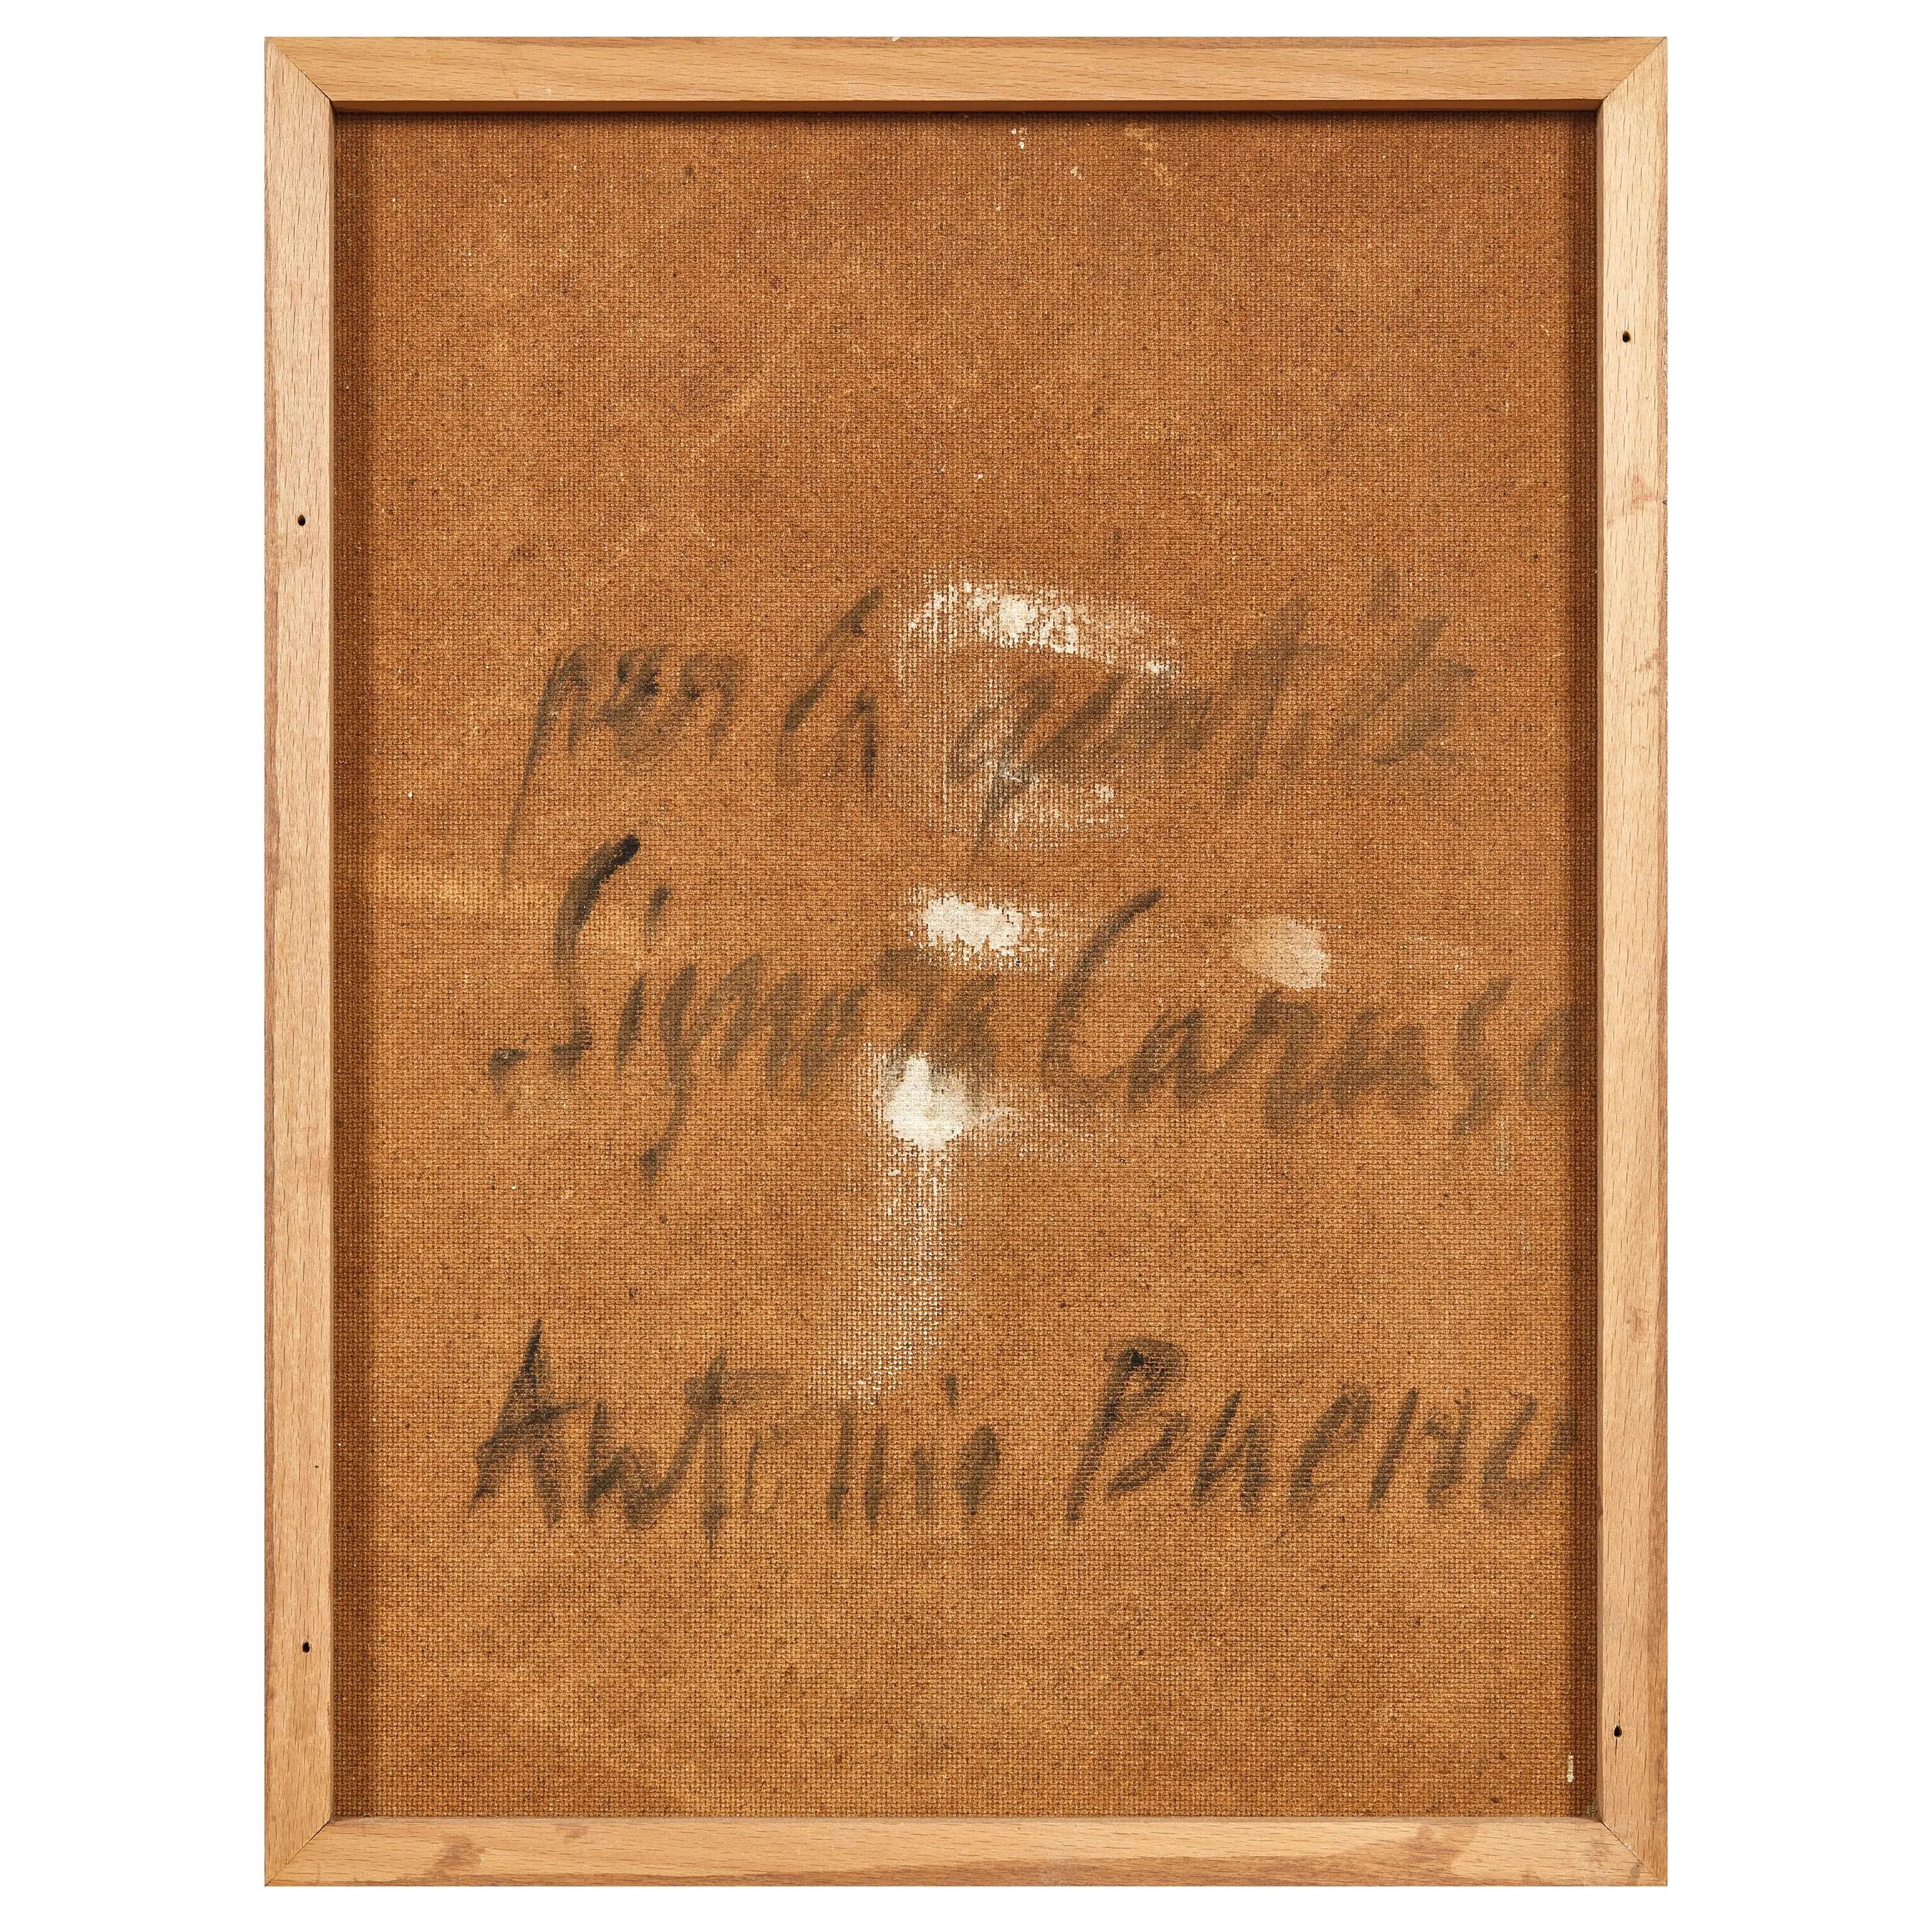 per la gentile
Signora Caruso
Antonio Bueno